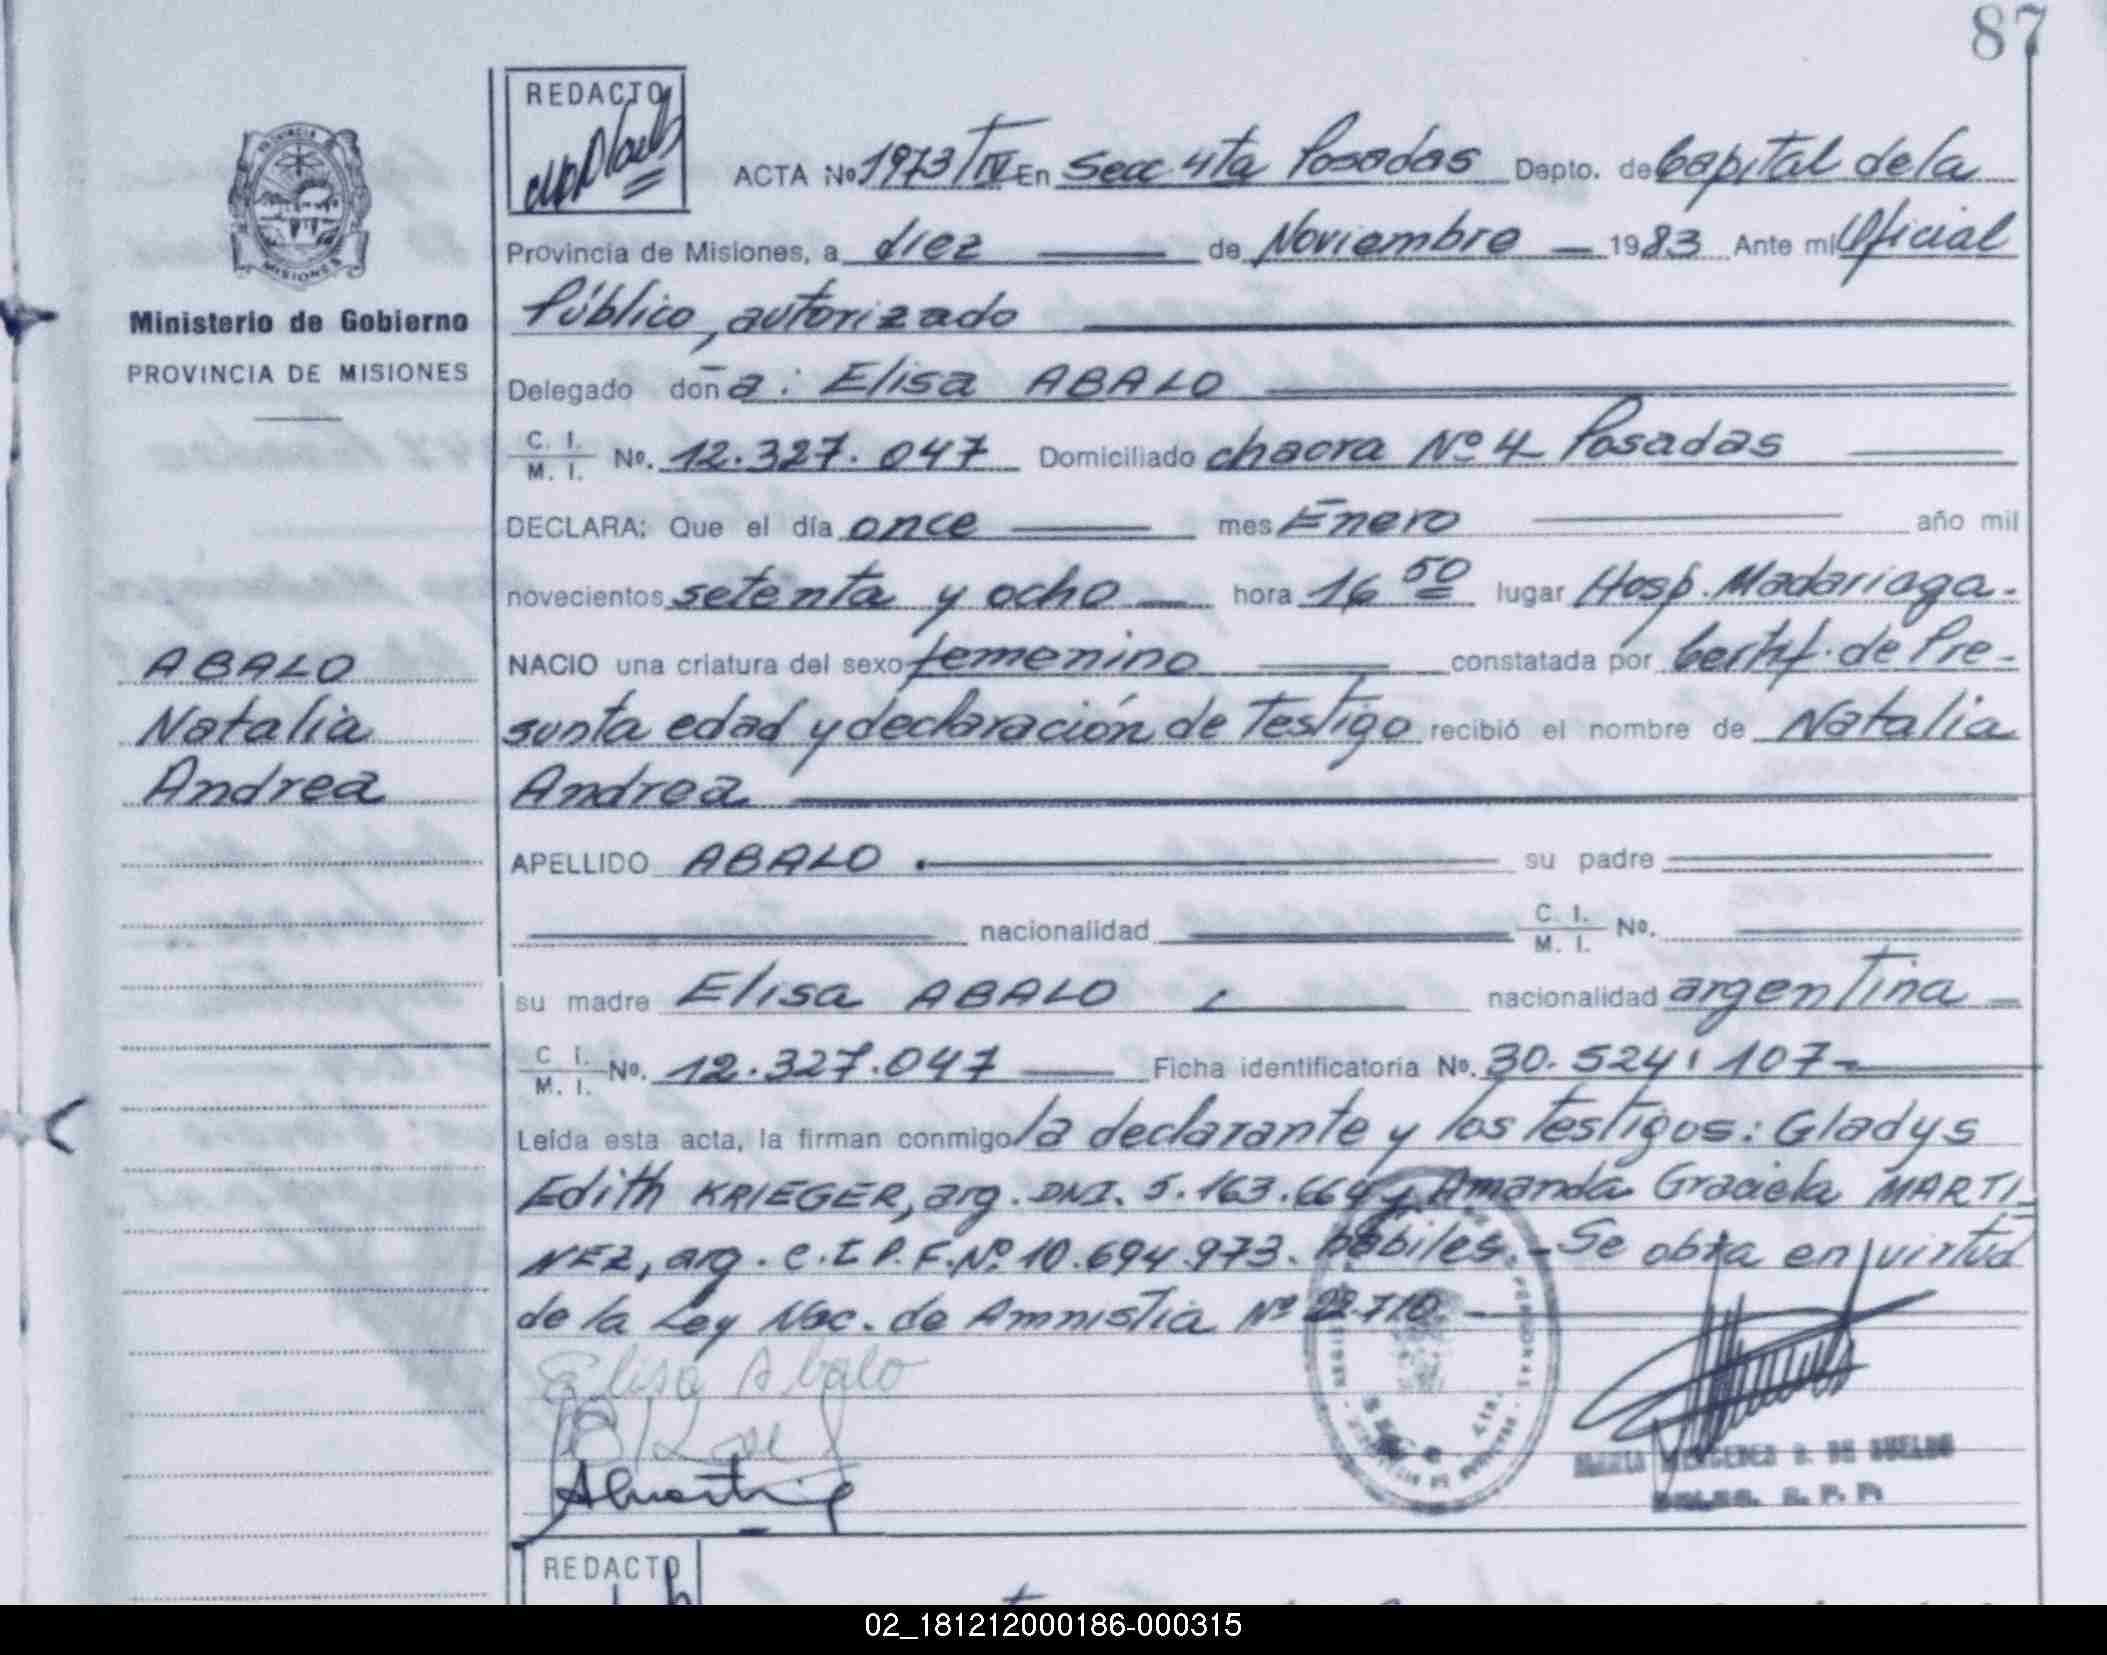 87
REDACTO
ACTA Nº 1973/IV En Secc. 4ta Posadas Depto. de Capital de la
Provincia de Misiones, a diez de Noviembre 1983 Ante mí Oficial
Público, autorizado
Delegado doña: Elisa ABALO
C. I. / M. I. Nº. 12.327.047 Domiciliado chacra Nº 4 Posadas
DECLARA: Que el día once mes Enero año mil
novecientos setenta y ocho hora 16 50 lugar Hosp. Madariaga.
NACIO una criatura del sexo femenino constatada por Certif. de Pre-
sunta edad y declaración de Testigo recibió el nombre de Natalia
Andrea
APELLIDO ABALO su padre
nacionalidad C. I. / M. I. Nº.
su madre Elisa ABALO nacionalidad argentina
C. I. / M. I. Nº. 12.327.047 Ficha identificatoria Nº. 30.524.107
Leída esta acta, la firman conmigo la declarante y los testigos: Gladys
Edith KRIEGER, arg. DNI. 5.163.664 y Amanda Graciela MARTI-
NEZ, arg. C.I.P.F. Nº 10.694.973. hábiles.- Se obra en virtud
de la Ley Nac. de Amnistia Nº 22.710
Elisa Abalo
PROVINCIA
MISIONES
Ministerio de Gobierno
PROVINCIA DE MISIONES
ABALO
Natalia
Andrea
REDACTO
02_181212000186-000315